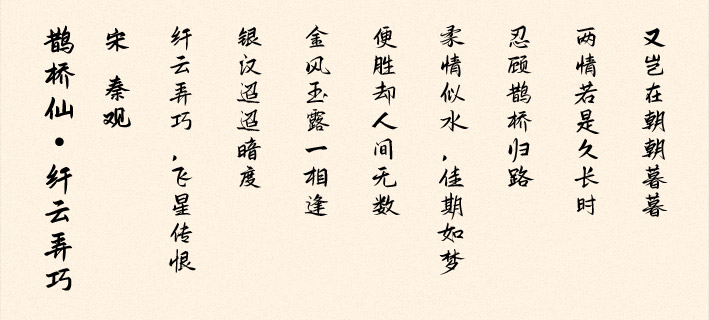 鹊桥仙·纤云弄巧
宋 秦观
纤云弄巧，飞星传恨
银汉迢迢暗度
金风玉露一相逢
便胜却人间无数
柔情似水，佳期如梦
忍顾鹊桥归路
两情若是久长时
又岂在朝朝暮暮